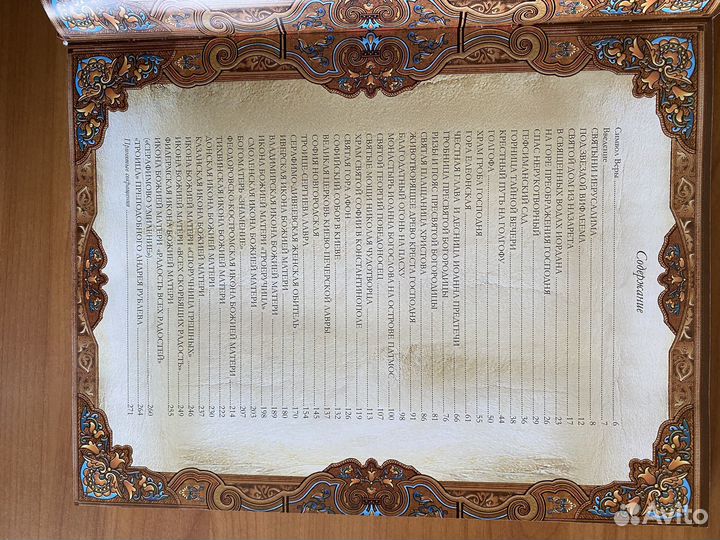 Содержание
Символ Веры 6
Введение 7
СВЯТЫНИ ИЕРУСАЛИМА 8
ПОД ЗВЕЗДОЙ ВИФЛЕЕМА 12
СВЯТОЙ ДОМ ИЗ НАЗАРЕТА 17
В СВЯЩЕННЫХ ВОДАХ ИОРДАНА 23
НА ГОРЕ ПРЕОБРАЖЕНИЯ ГОСПОДНЯ 26
СПАС НЕРУКОТВОРНЫЙ 29
ГЕФСИМАНСКИЙ САД 36
ГОРНИЦА ТАЙНОЙ ВЕЧЕРИ 38
КРЕСТНЫЙ ПУТЬ НА ГОЛГОФУ 44
ГОЛГОФА 50
ХРАМ ГРОБА ГОСПОДНЯ 55
ГОРА ЕЛЕОНСКАЯ 61
ЧЕСТНАЯ ГЛАВА И ДЕСНИЦА ИОАННА ПРЕДТЕЧИ 66
ГРОБНИЦА ПРЕСВЯТОЙ БОГОРОДИЦЫ 76
РИЗА И ПОЯС ПРЕСВЯТОЙ БОГОРОДИЦЫ 81
СВЯТАЯ ПЛАЩАНИЦА ХРИСТОВА 86
ЖИВОТВОРЯЩЕЕ ДРЕВО КРЕСТА ГОСПОДНЯ 91
БЛАГОДАТНЫЙ ОГОНЬ НА ПАСХУ 98
МОНАСТЫРЬ ИОАННА БОГОСЛОВА НА ОСТРОВЕ ПАТМОС 100
СВЯТОЙ ГЕОРГИЙ ПОБЕДОНОСЕЦ 107
СВЯТЫЕ МОЩИ НИКОЛАЯ ЧУДОТВОРЦА 113
ХРАМ СВЯТОЙ СОФИИ В КОНСТАНТИНОПОЛЕ 119
СВЯТАЯ ГОРА АФОН 126
СОФИЙСКИЙ СОБОР В КИЕВЕ 132
ВЕЛИКАЯ ЦЕРКОВЬ КИЕВО-ПЕЧЕРСКОЙ ЛАВРЫ 137
СОФИЯ НОВГОРОДСКАЯ 145
ТРОИЦЕ-СЕРГИЕВА ЛАВРА 154
СЕРАФИМО-ДИВЕЕВСКАЯ ЖЕНСКАЯ ОБИТЕЛЬ 170
ИВЕРСКАЯ ИКОНА БОЖИЕЙ МАТЕРИ 180
ВЛАДИМИРСКАЯ ИКОНА БОЖИЕЙ МАТЕРИ 189
ИКОНА БОЖИЕЙ МАТЕРИ «ТРОЕРУЧИЦА» 198
СМОЛЕНСКАЯ ИКОНА БОЖИЕЙ МАТЕРИ 203
БОГОМАТЕРЬ «ЗНАМЕНИЕ» 207
ФЕОДОРОВСКО-КОСТРОМСКАЯ ИКОНА БОЖИЕЙ МАТЕРИ 214
ТИХВИНСКАЯ ИКОНА БОЖИЕЙ МАТЕРИ 222
ДОНСКАЯ ИКОНА БОЖИЕЙ МАТЕРИ 230
КАЗАНСКАЯ ИКОНА БОЖИЕЙ МАТЕРИ 237
ИКОНА БОЖИЕЙ МАТЕРИ «СПОРУЧНИЦА ГРЕШНЫХ» 246
ИКОНА БОЖИЕЙ МАТЕРИ «ВСЕХ СКОРБЯЩИХ РАДОСТЬ» 249
ИКОНА БОЖИЕЙ МАТЕРИ 255
ИКОНА БОЖИЕЙ МАТЕРИ «РАДОСТЬ ВСЕХ РАДОСТЕЙ»
(«СЕРАФИМОВО УМИЛЕНИЕ») 260
«ТРОИЦА» ПРЕПОДОБНОГО АНДРЕЯ РУБЛЕВА 264
Принятые сокращения 271
Avito